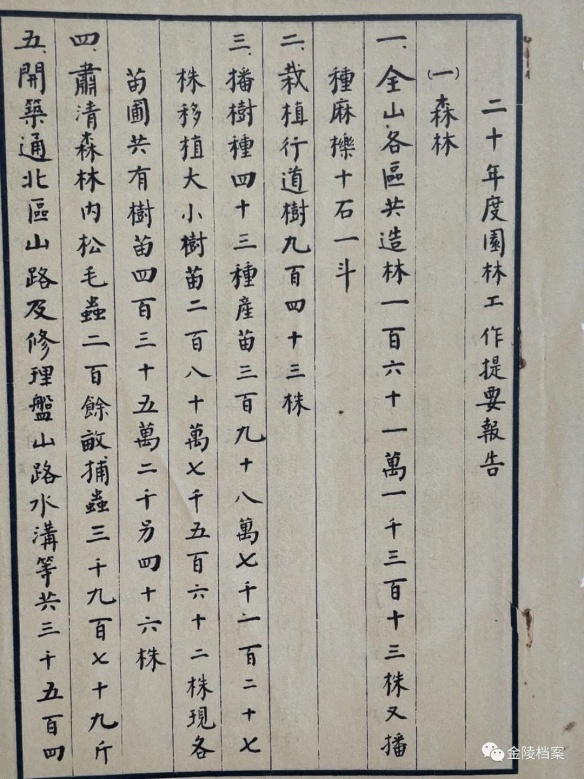 二十年度園林工作提要報告
㈠森林
一、全山各區共造林一百六十一萬一千三百十三株又播
種麻櫟十石一斗
二、栽植行道樹九百四十三株
三、播樹種四十三種產苗三百九十八萬七千一百二十七
株移植大小樹苗二百八十萬七千五百六十二株現各
苗圃共有樹苗四百三十五萬二千另四十六株
四、肅清森林內松毛蟲二百餘畝捕蟲三千九百七十九斤
五、開築通北區山路及修理盤山路水溝等共三千五百四
金陵档案